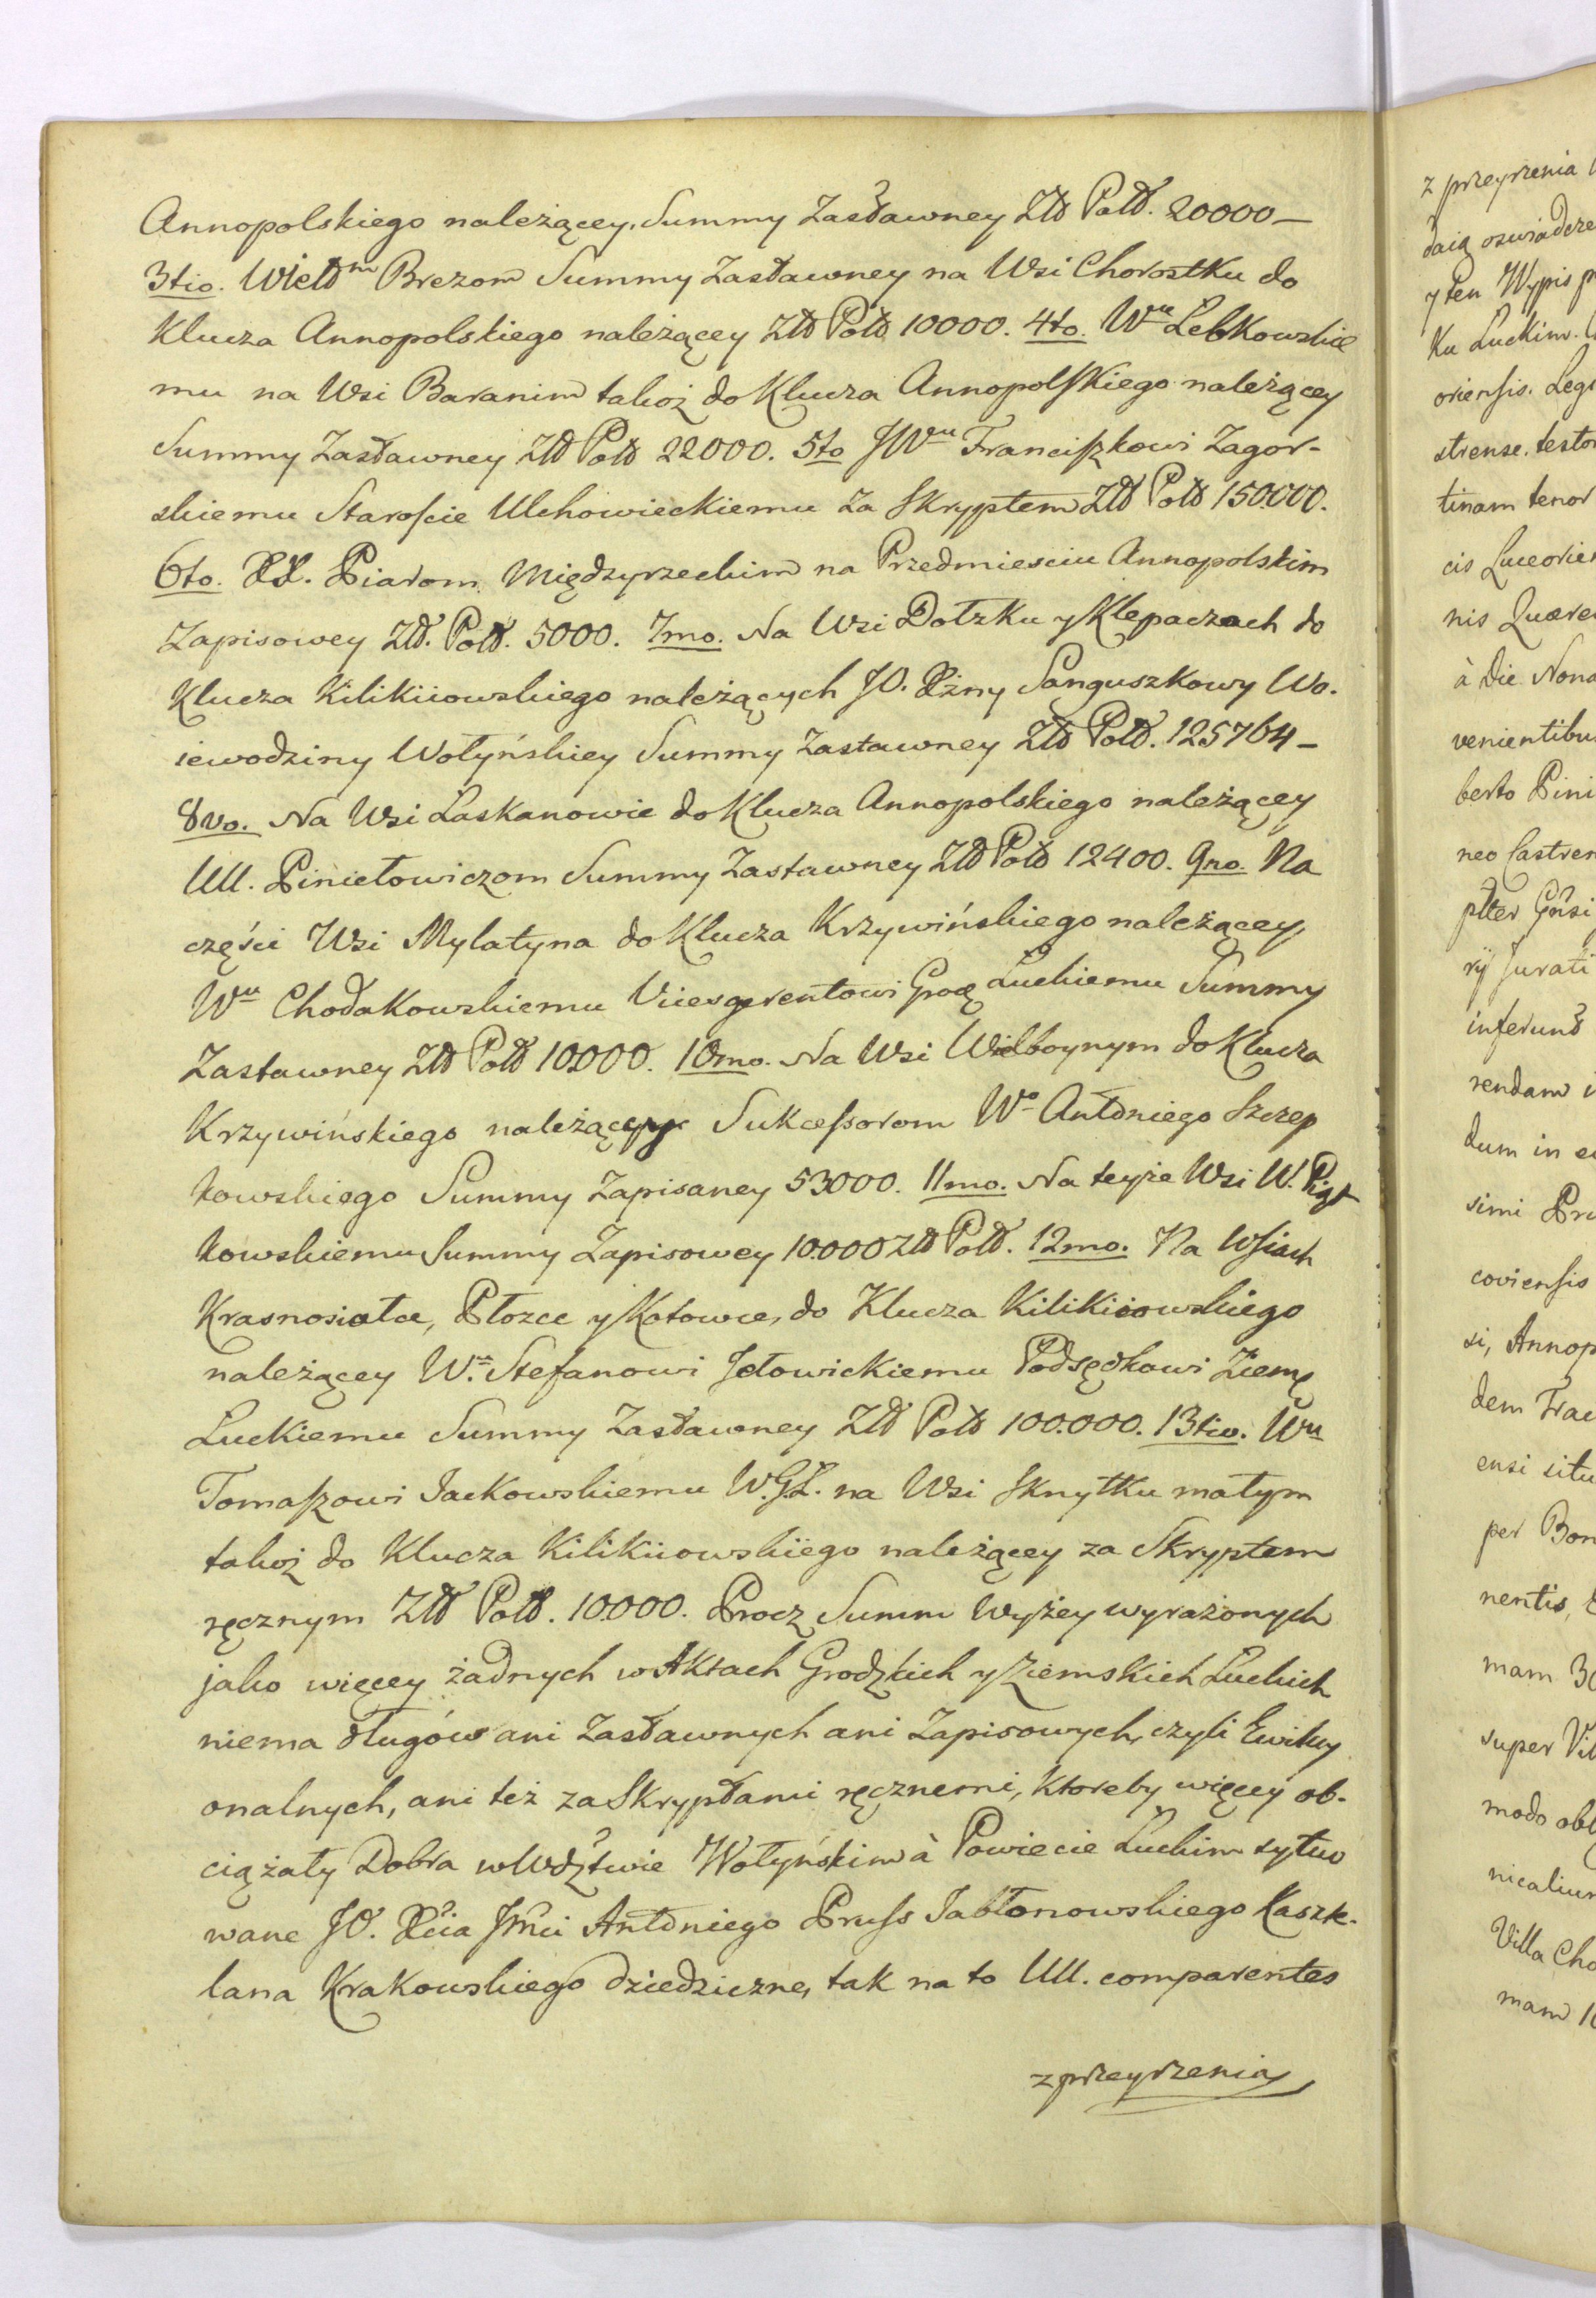 Annopolskiego należącey, Summy Zastawney Złł Poll. 20000 —
3tio. Wiellm Brezom Summy Zastawney na Wsi Chorostku do
Klucza Annopolskiego należącey Złł Poll 10000. 4to. Wmu Lebkowskie
mu na Wsi Baranim takoż do Klucza Annopolskiego należącey
Summy Zastawney Złł Poll 22000. 5to JWu Franciszkowi Zagor-
skiemu Staroście Ulchowieckiemu za Skryptem Złł Poll 150.000.
6to. XX. Piarom Międzyrzeckim na Przedmiesciu Annopolskim
Zapisowey Zł. Poll. 5000. 7mo. Na Wsi Dołzku y Klepaczach do
Klucza Kilikiiowskiego należących JO. Xżny Sanguszkowy Wo-
iewodziny Wołyńskiey Summy Zastawney Złł Poll. 125764 —
8vo. Na Wsi Laskanowie do Klucza Annopolskiego należącey
UU. Piniełowiczom Summy Zastawney Złł Poll 12400. 9no. Na
części Wsi Mylatyna do Klucza Krzywińskiego należącey,
Wu Chodakowskiemu Vicesgerentowi Grod Luckiemu Summy
Zastawney Złł Poll 10000. 10mo. Na Wsi Wielboynym do Klucza
Krzywińskiego należącey Sukcessorom Wo Antoniego Szczep
kowskiego Summy Zapisaney 53000. 11mo. Na teyże Wsi W. Piąt
kowskiemu Summy Zapisowey 10.000 Złł Poll. 12mo. Na Wsiach
Krasnosiołce, Płozce y Kotowce, do Klucza Kilikiiowskiego
należącey Wu Stefanowi Jełowickiemu Podsędkowi Ziemę
Luckiemu Summy Zastawney Złł Poll 100.000. 13tio. Wu
Tomaszowi Jackowskiemu W.G.Ł. na Wsi Sknytku małym
takoż do Klucza Kilikiiowskiego należącey za Skryptem
ręcznym Złł Poll. 10.000. Procz Summ wyżey wyrażonych
jako więcey żadnych w Aktach Grodzkich y Ziemskich Luckich
niema długów ani Zastawnych ani Zapisowych, czyli Ewikcy
onalnych, ani też za Skryptami ręcznemi, ktoreby więcey ob-
ciążały Dobra w Wdztwie Wołyńskim à Powiecie Luckim sytuo
wane JO. Xcia Jmci Antoniego Pruss Jabłonowskiego Kaszte-
lana Krakowskiego dziedziczne, tak na to UU. comparentes
z przeyrzenia
z przeyrzenia
daią oswiadcze
y ten Wypis p
Ku Luckim.
oriensis. Leg
strense. testo
tinam tenor
cis Luceorien
nis Quere
à Die Nona
venientibus
berto Pini
neo Castren
plter Gnsi
rÿ Jurati
inferund
rendam i
dum in e
simi Pr
coviensis
si, Annop
dem Trac
ensi situ
per Bon
nentis,
mam 30
super Vil
modo obl
nicaliur
Villa Cho
mam 10